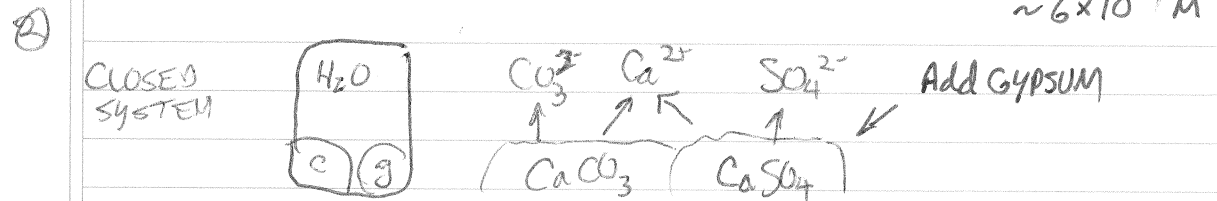 ~6×10 M
②
CLOSED SYSTEM
H₂O
CO₃²⁻ Ca²⁺ SO₄²⁻ Add GYPSUM
c g
CaCO₃ CaSO₄